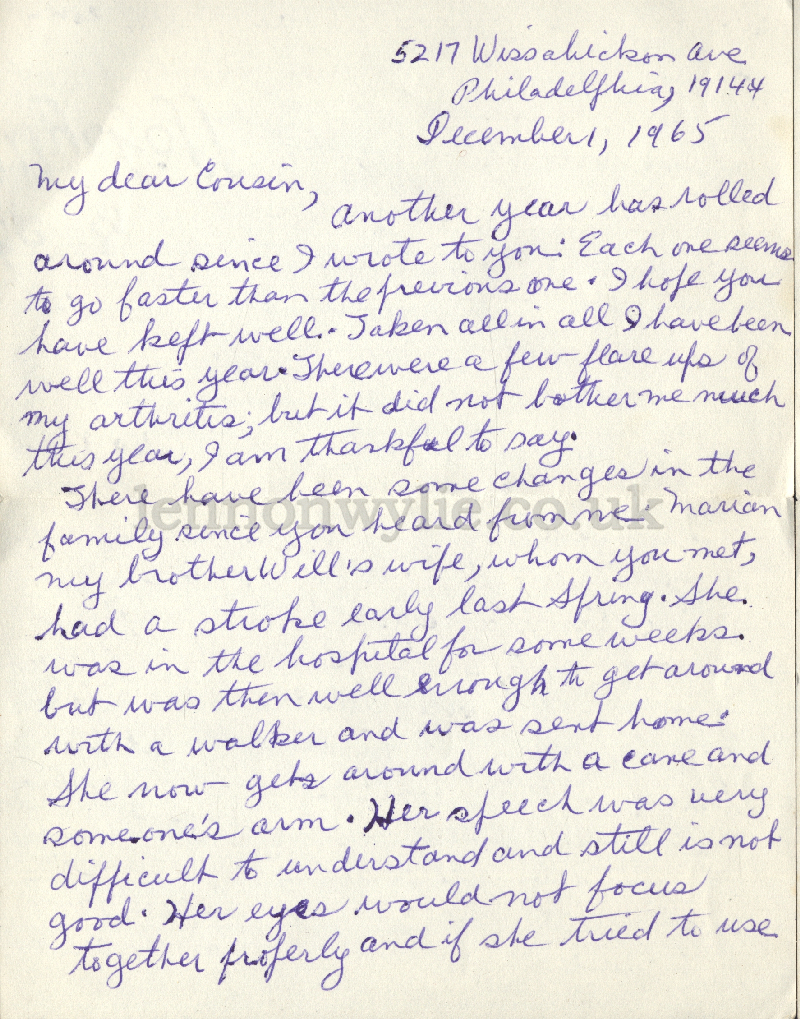 5217 Wissahickon Ave
Philadelphia, 19144
December 1, 1965
My dear Cousin,
Another year has rolled
around since I wrote to you. Each one seems
to go faster than the previous one. I hope you
have kept well. Taken all in all I have been
well this year. There were a few flare ups of
my arthritis; but it did not bother me much
this year, I am thankful to say.
There have been some changes in the
lennonwylie.co.uk
family since you heard from me. Marian
my brother Will's wife, whom you met,
had a stroke early last Spring. She
was in the hospital for some weeks.
but was then well enough to get around
with a walker and was sent home.
She now gets around with a cane and
someone's arm. Her speech was very
difficult to understand and still is not
good. Her eyes would not focus
together properly and if she tried to use